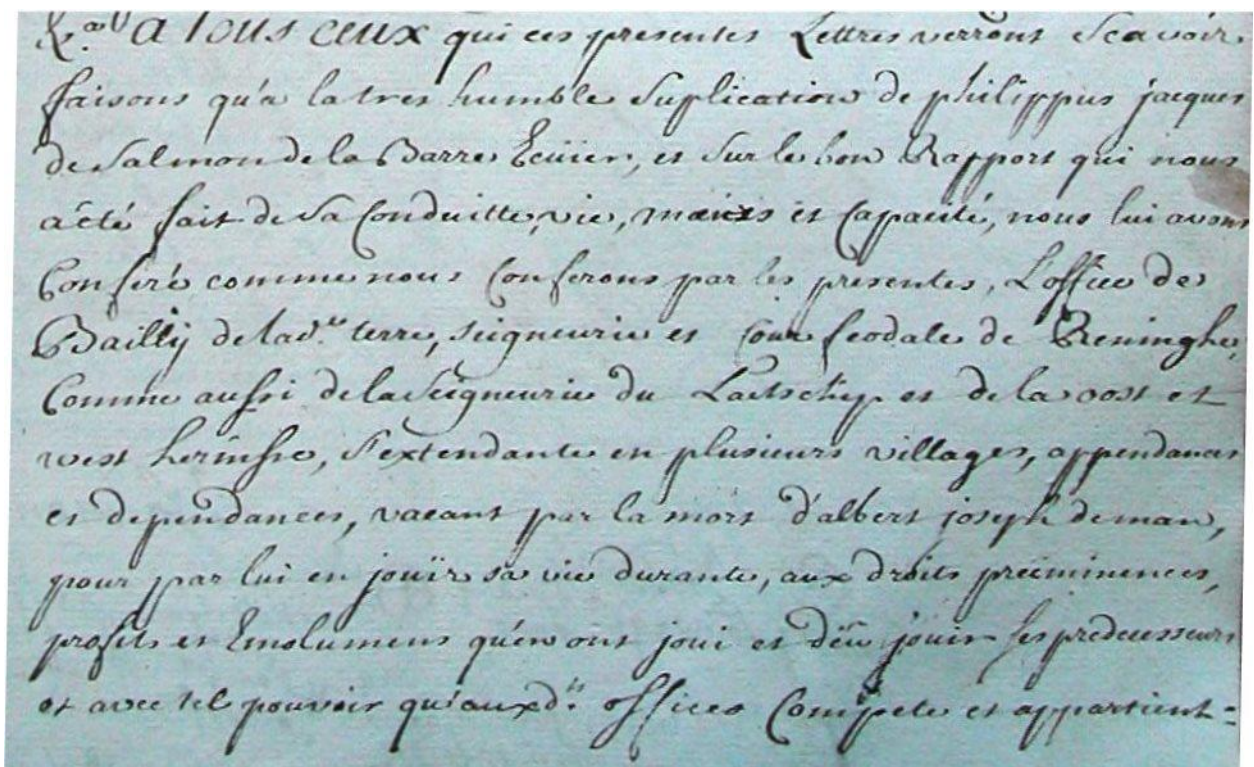 &.ª A Tous ceux qui ces presentes Lettres verront Scavoir
faisons qu'a la tres humble Suplication de philippus jacques
de Salmon de la Barre Ecüier, et Sur le bon Rapport qui nous
a été fait de Sa Conduitte, vie, mœurs et Capacité, nous lui avons
Conferé comme nous Conferons par les presentes, L'office de
Bailly de lad.te terre, seigneurie et Cour feodale de Reninghe,
Comme aussi de la Seigneurie du Laetschip et de la oost et
west , S'extendante en plusieurs villages, appendances
et dependances, vacant par la mort d'albert joseph deman,
pour par lui en jouïr sa vie durante, aux droits preéminences,
profits et Emolumens qu'en ont joui et dëu jouir ses predecesseurs
et avec tel pouvoir qu'auxd.ts offices Compete et appartient=